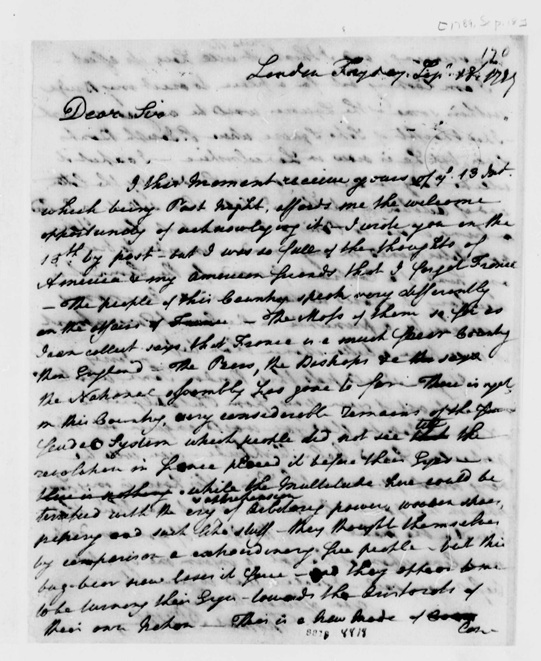 [1789, Sep. 18]
120
London Fryday. Sepr. 18th 1789
Dear Sir
I this Moment receive yours of ye. 13 Int.
which being Post Night, affords me the welcome
opportunity of acknowledging it. I wrote you on the
15th by post - but I was so full of the thoughts of
America & my American friends that I forgot France
- The people of this Country speak very differently
on the affairs of France - The Mass of them so far as
I can collect says, that France is a much freer Country
than England - The Peers, the Bishops &c the says
the National Assembly has gone too far There is yet,
in this Country, very considerable remains of the
feudal System which people did not see till the
revolution in France placed it before their Eyes -
while the Multitude here could be
terrified with the cry of Arbitrary power, wooden shoes,
popery and such like stuff they thought themselves
by comparison a extraordinary free people - but this
bug-bear now loses it force - and they appear to me
to be turning their Eyes - towards the Aristocrats of
their own Nation - This is a New Mode of
Con-